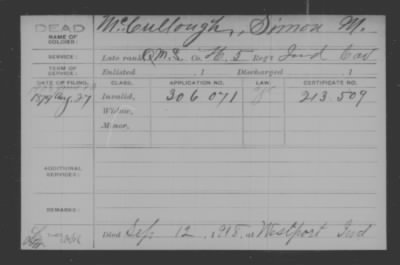 DEAD
NAME OF SOLDIER: McCullough, Simon M.
SERVICE: Late rank, Co. H, 5 Reg't Ind Cav
TERM OF SERVICE: Enlisted , 1 Discharged , 1
DATE OF FILING. CLASS. APPLICATION NO. LAW. CERTIFICATE NO.
1879 Aug. 27 Invalid, 306 071 213.509
Widow,
Minor,
ADDITIONAL SERVICES:
REMARKS:
Died Sep 12, 1915, at Westport Ind